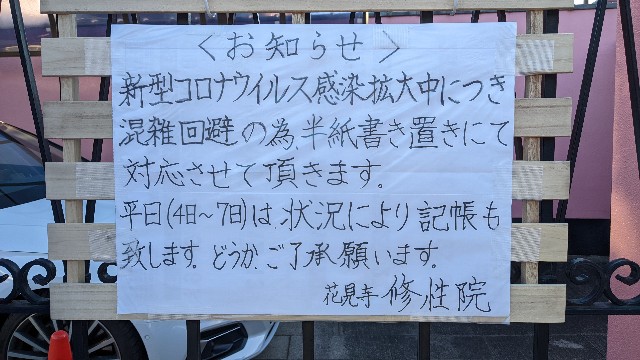 〈お知らせ〉
新型コロナウイルス感染拡大中につき
混雑回避の為、半紙書き置きにて
対応させて頂きます。
平日(4日～7日)は、状況により記帳も
致します。どうか、ご了承願います。
花見寺 修性院